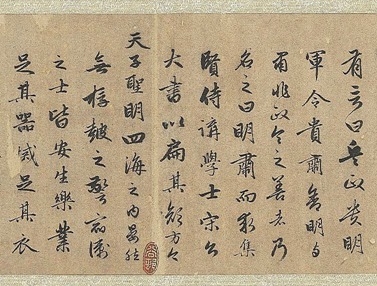 有言曰兵政貴明
軍令貴肅舍明與
肅非政令之善者乃
名之曰明肅而求集
賢侍講學士宋公
大書以扁其顏方今
天子聖明四海之內晏然
無桴鼓之警宿衛
之士皆安生樂業
足其器械足其衣